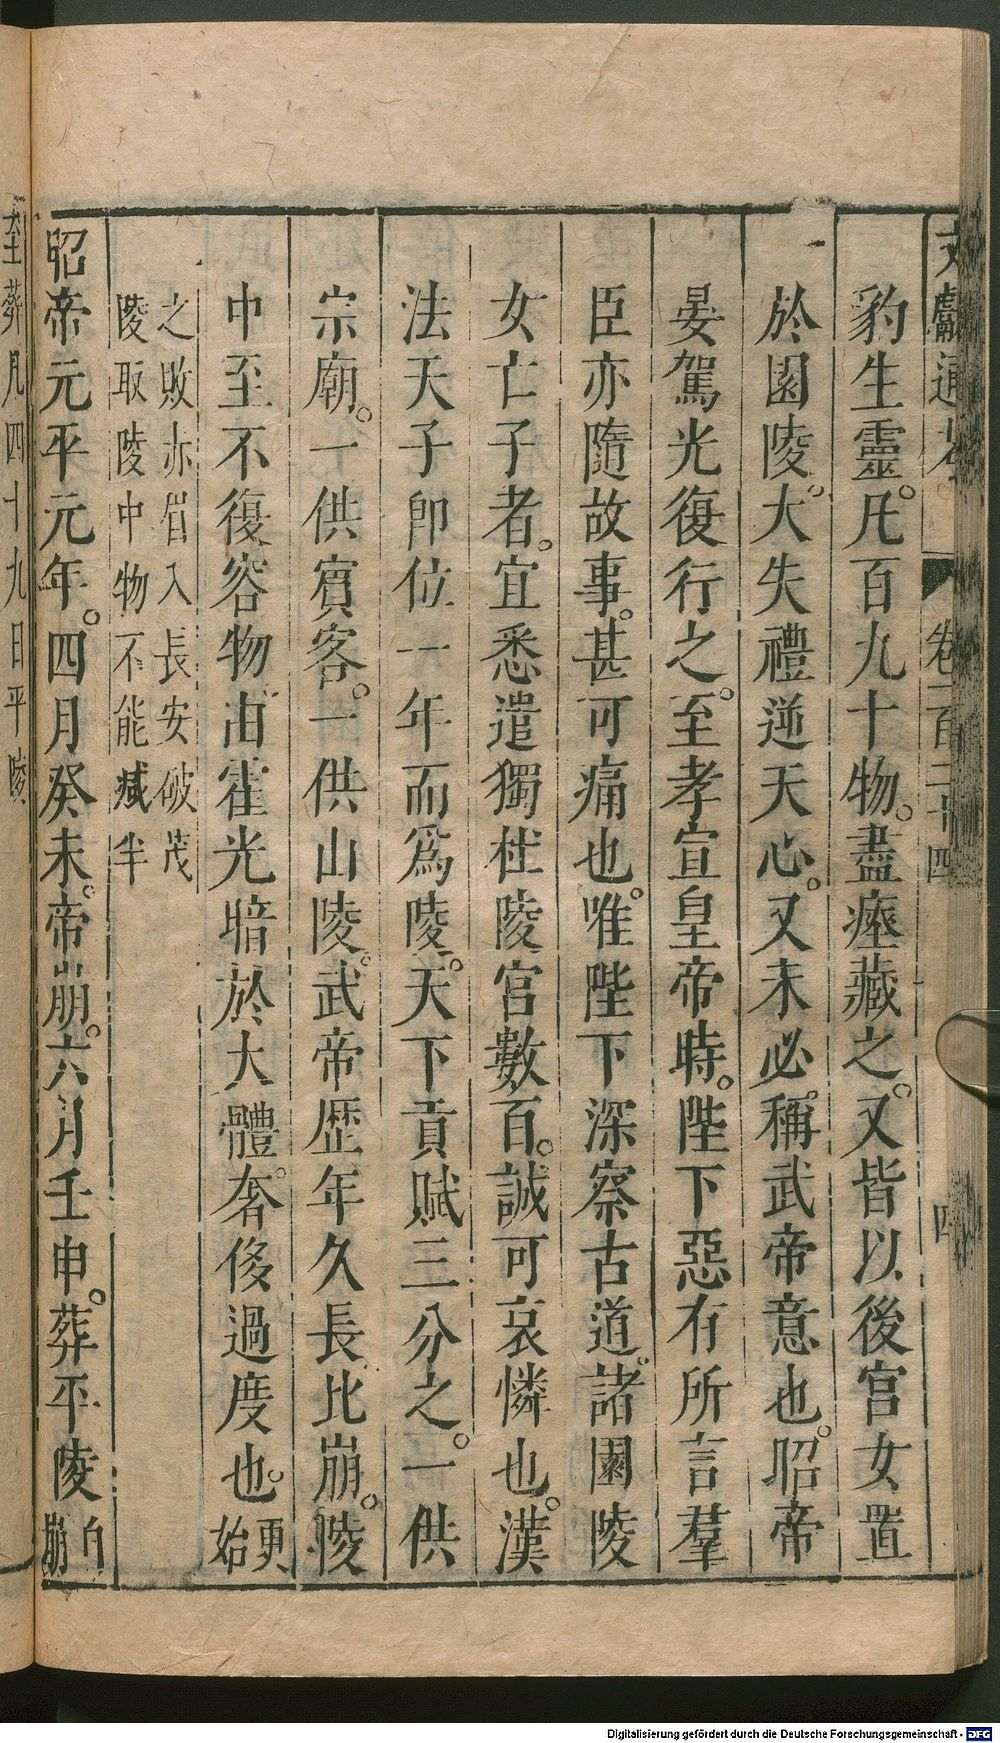 文獻通考 卷一百二十四 四
豹生靈。凡百九十物。盡瘞藏之。又皆以後宮女置
於園陵。大失禮逆天心。又未必稱武帝意也。昭帝
晏駕光復行之。至孝宣皇帝時。陛下惡有所言羣
臣亦隨故事。甚可痛也。唯陛下深察古道。諸園陵
女亡子者。宜悉遣獨杜陵宮數百。誠可哀憐也。漢
法天子卽位一年而爲陵。天下貢賦三分之。一供
宗廟。一供賓客。一供山陵。武帝歷年久長比崩。陵
中至不復容物。由霍光暗於大體。奢侈過度也。更始
之敗赤眉入長安破茂
陵取陵中物不能減半
昭帝元平元年。四月癸未。帝崩。六月壬申。葬平陵自崩
至葬凡四十九日平陵
Digitalisierung gefördert durch die Deutsche Forschungsgemeinschaft - DFG